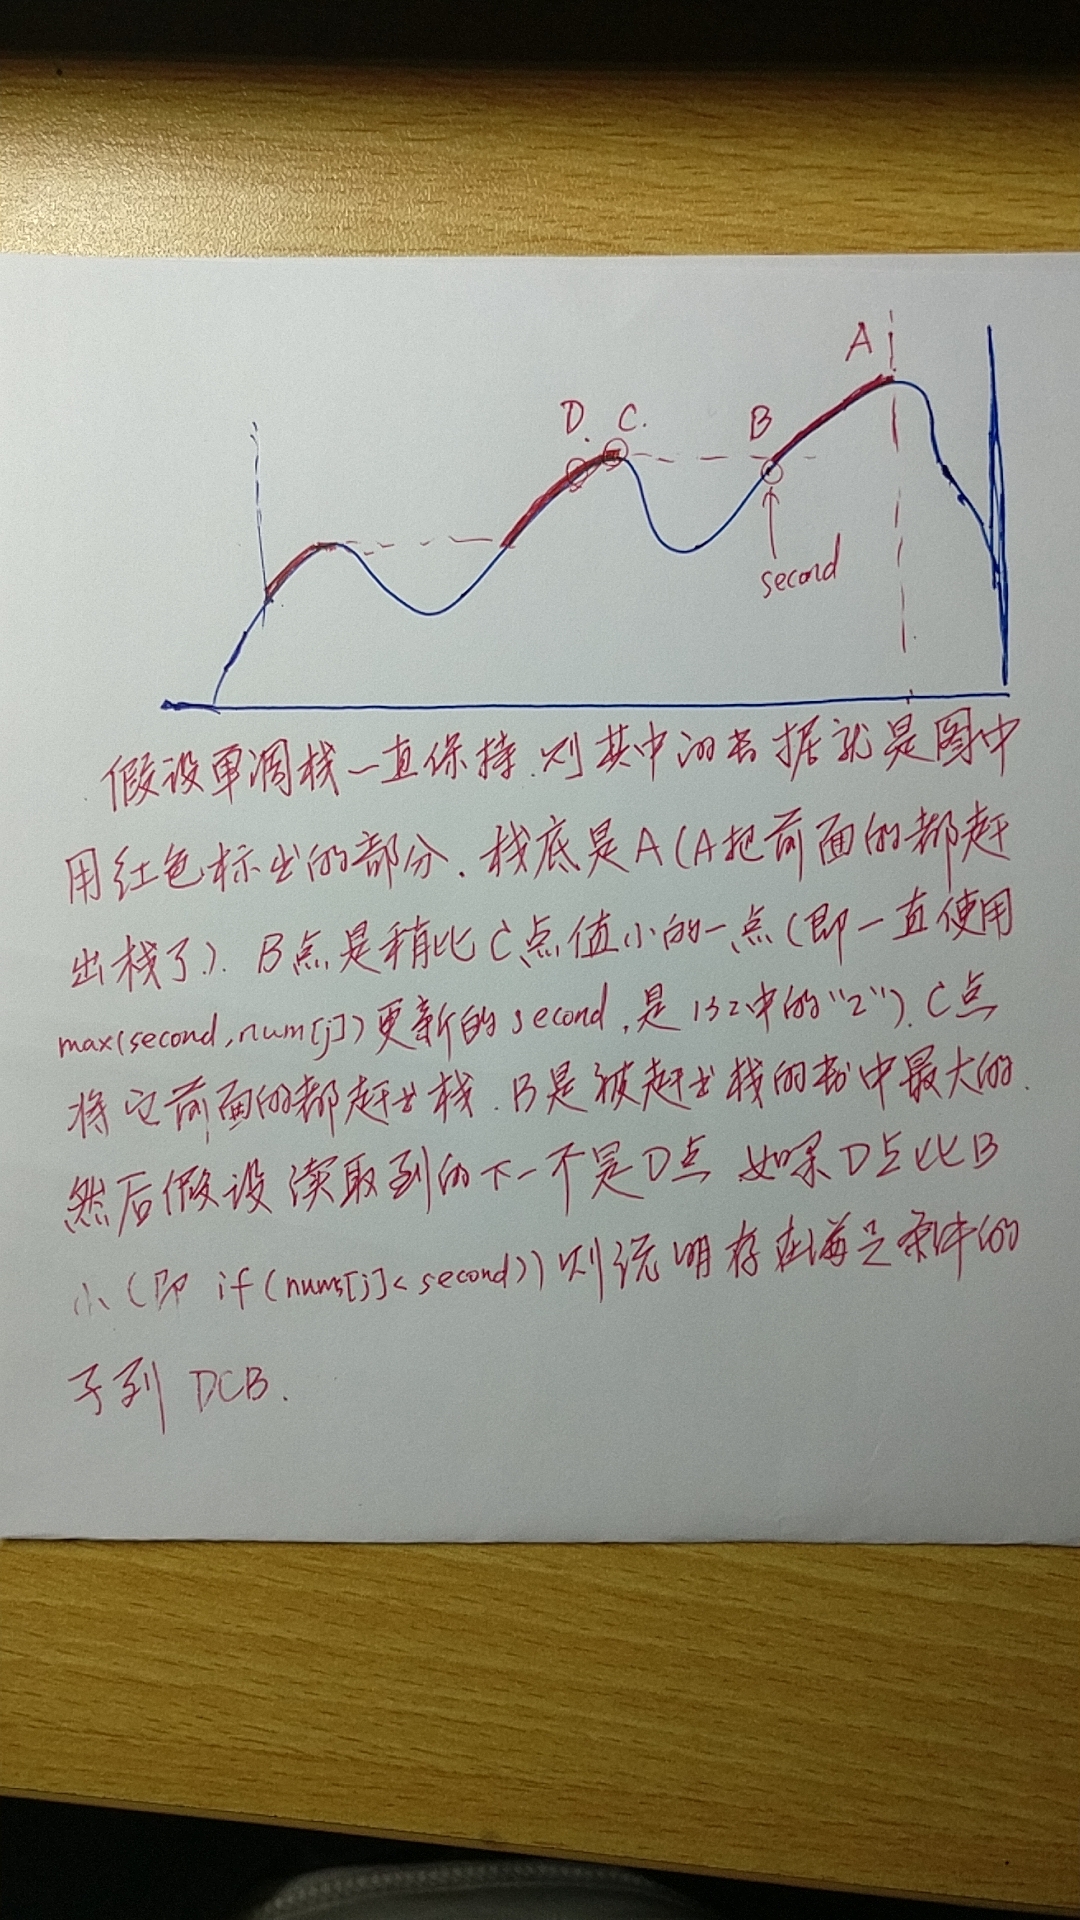 A
D. C.
B
second
假设单调栈一直保持.则其中的数据就是图中
用红色标出的部分.栈底是A(A把前面的都赶
出栈了).B点是稍比C点值小的一点(即一直使用
max(second,num[j])更新的second,是132中的"2").C点
将它前面的都赶出栈.B是被赶出栈的数中最大的.
然后假设读取到的下一个是D点 如果D点比B
小(即 if(nums[j]<second))则说明存在满足条件的
子列 DCB.